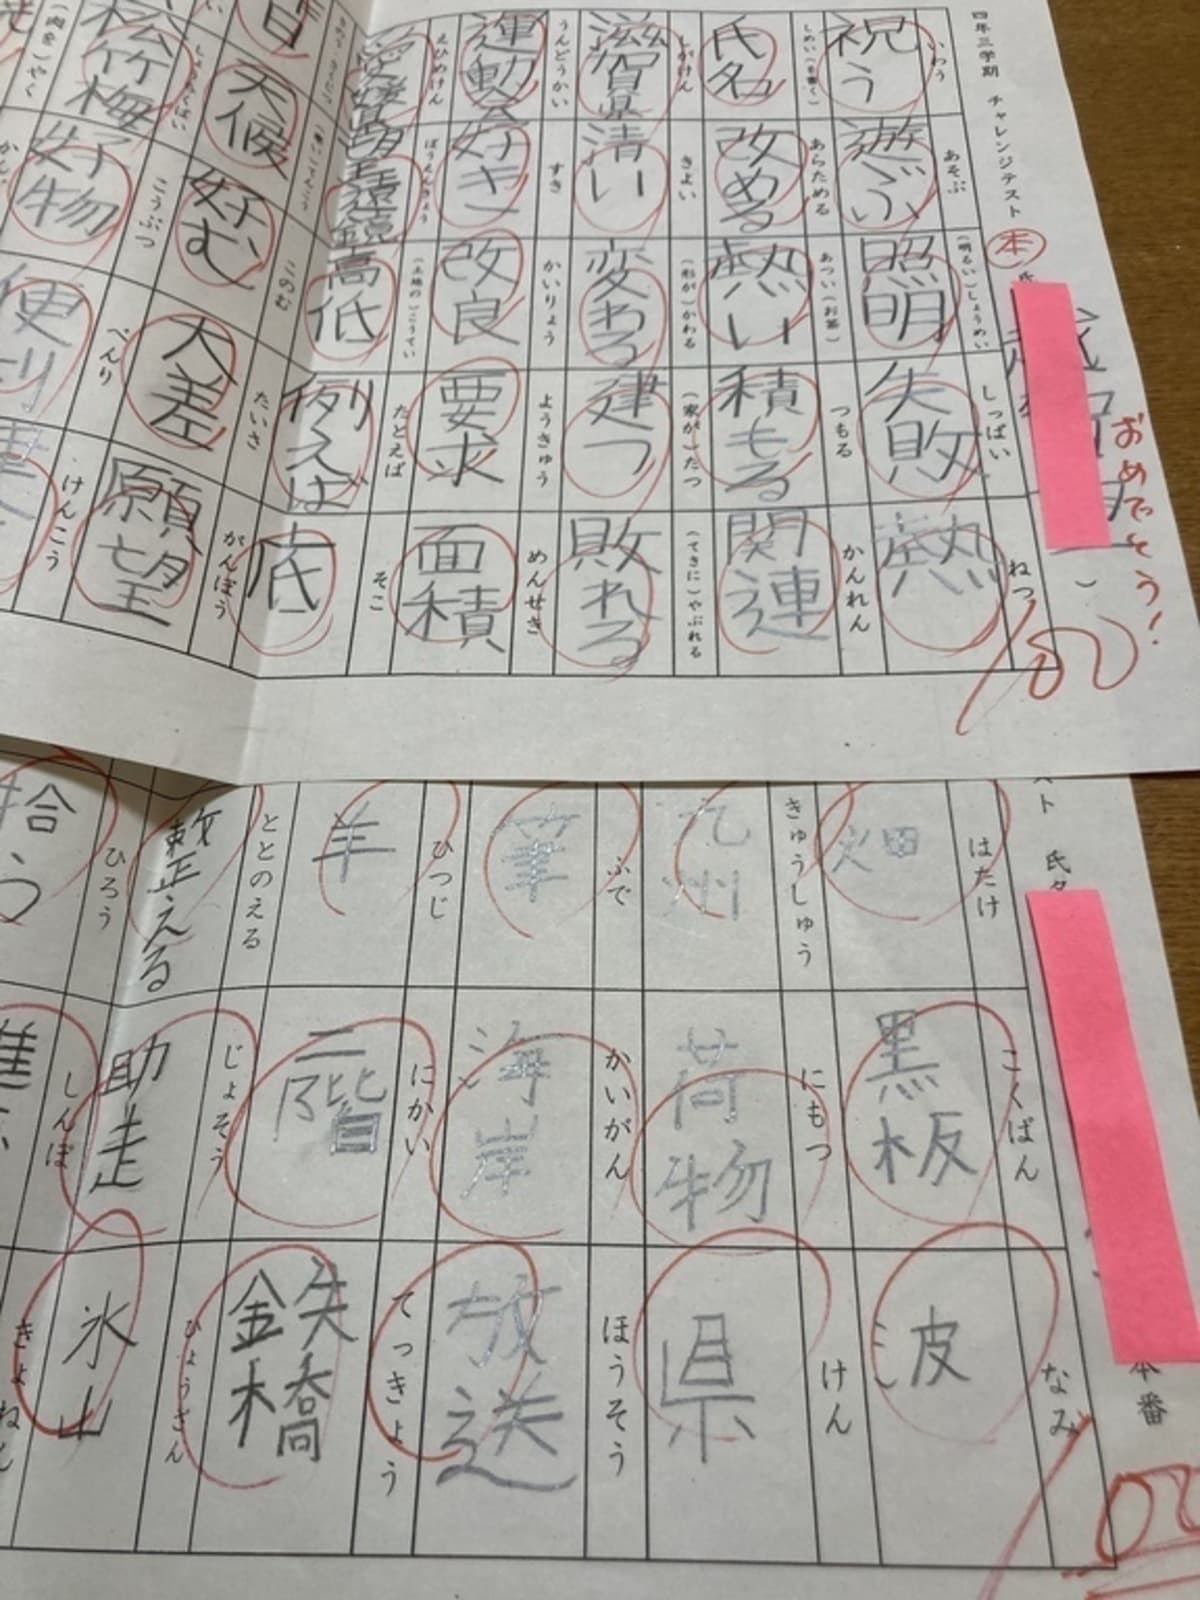 四年三学期 チャレンジテスト 本 氏
おめでとう！
100
いわう
祝う
あそぶ
遊ぶ
(明るい)しょうめい
照明
しっぱい
失敗
ねつ
熱
しめい(を書く)
氏名
あらためる
改める
あつい(お茶)
熱い
つもる
積もる
かんれん
関連
しがけん
滋賀県
きよい
清い
(形が)かわる
変わる
(家が)たつ
建つ
(てきに)やぶれる
敗れる
うんどうかい
運動会
すき
好き
かいりょう
改良
ようきゅう
要求
めんせき
面積
えひめけん
愛媛県
ぼうえんきょう
望遠鏡
(土地の)こうてい
高低
たとえば
例えば
そこ
底
天候
このむ
好む
たいさ
大差
がんぼう
願望
しょうちくばい
松竹梅
こうぶつ
好物
べんり
便利
けんこう
(肉を)やく
スト 氏名
本番
100
はたけ
畑
こくばん
黒板
なみ
波
きゅうしゅう
九州
にもつ
荷物
けん
県
ふで
筆
かいがん
海岸
ほうそう
放送
ひつじ
羊
にかい
二階
てっきょう
鉄橋
ととのえる
整える
じょそう
助走
ひょうざん
氷山
ひろう
拾う
しんぽ
進
きょねん